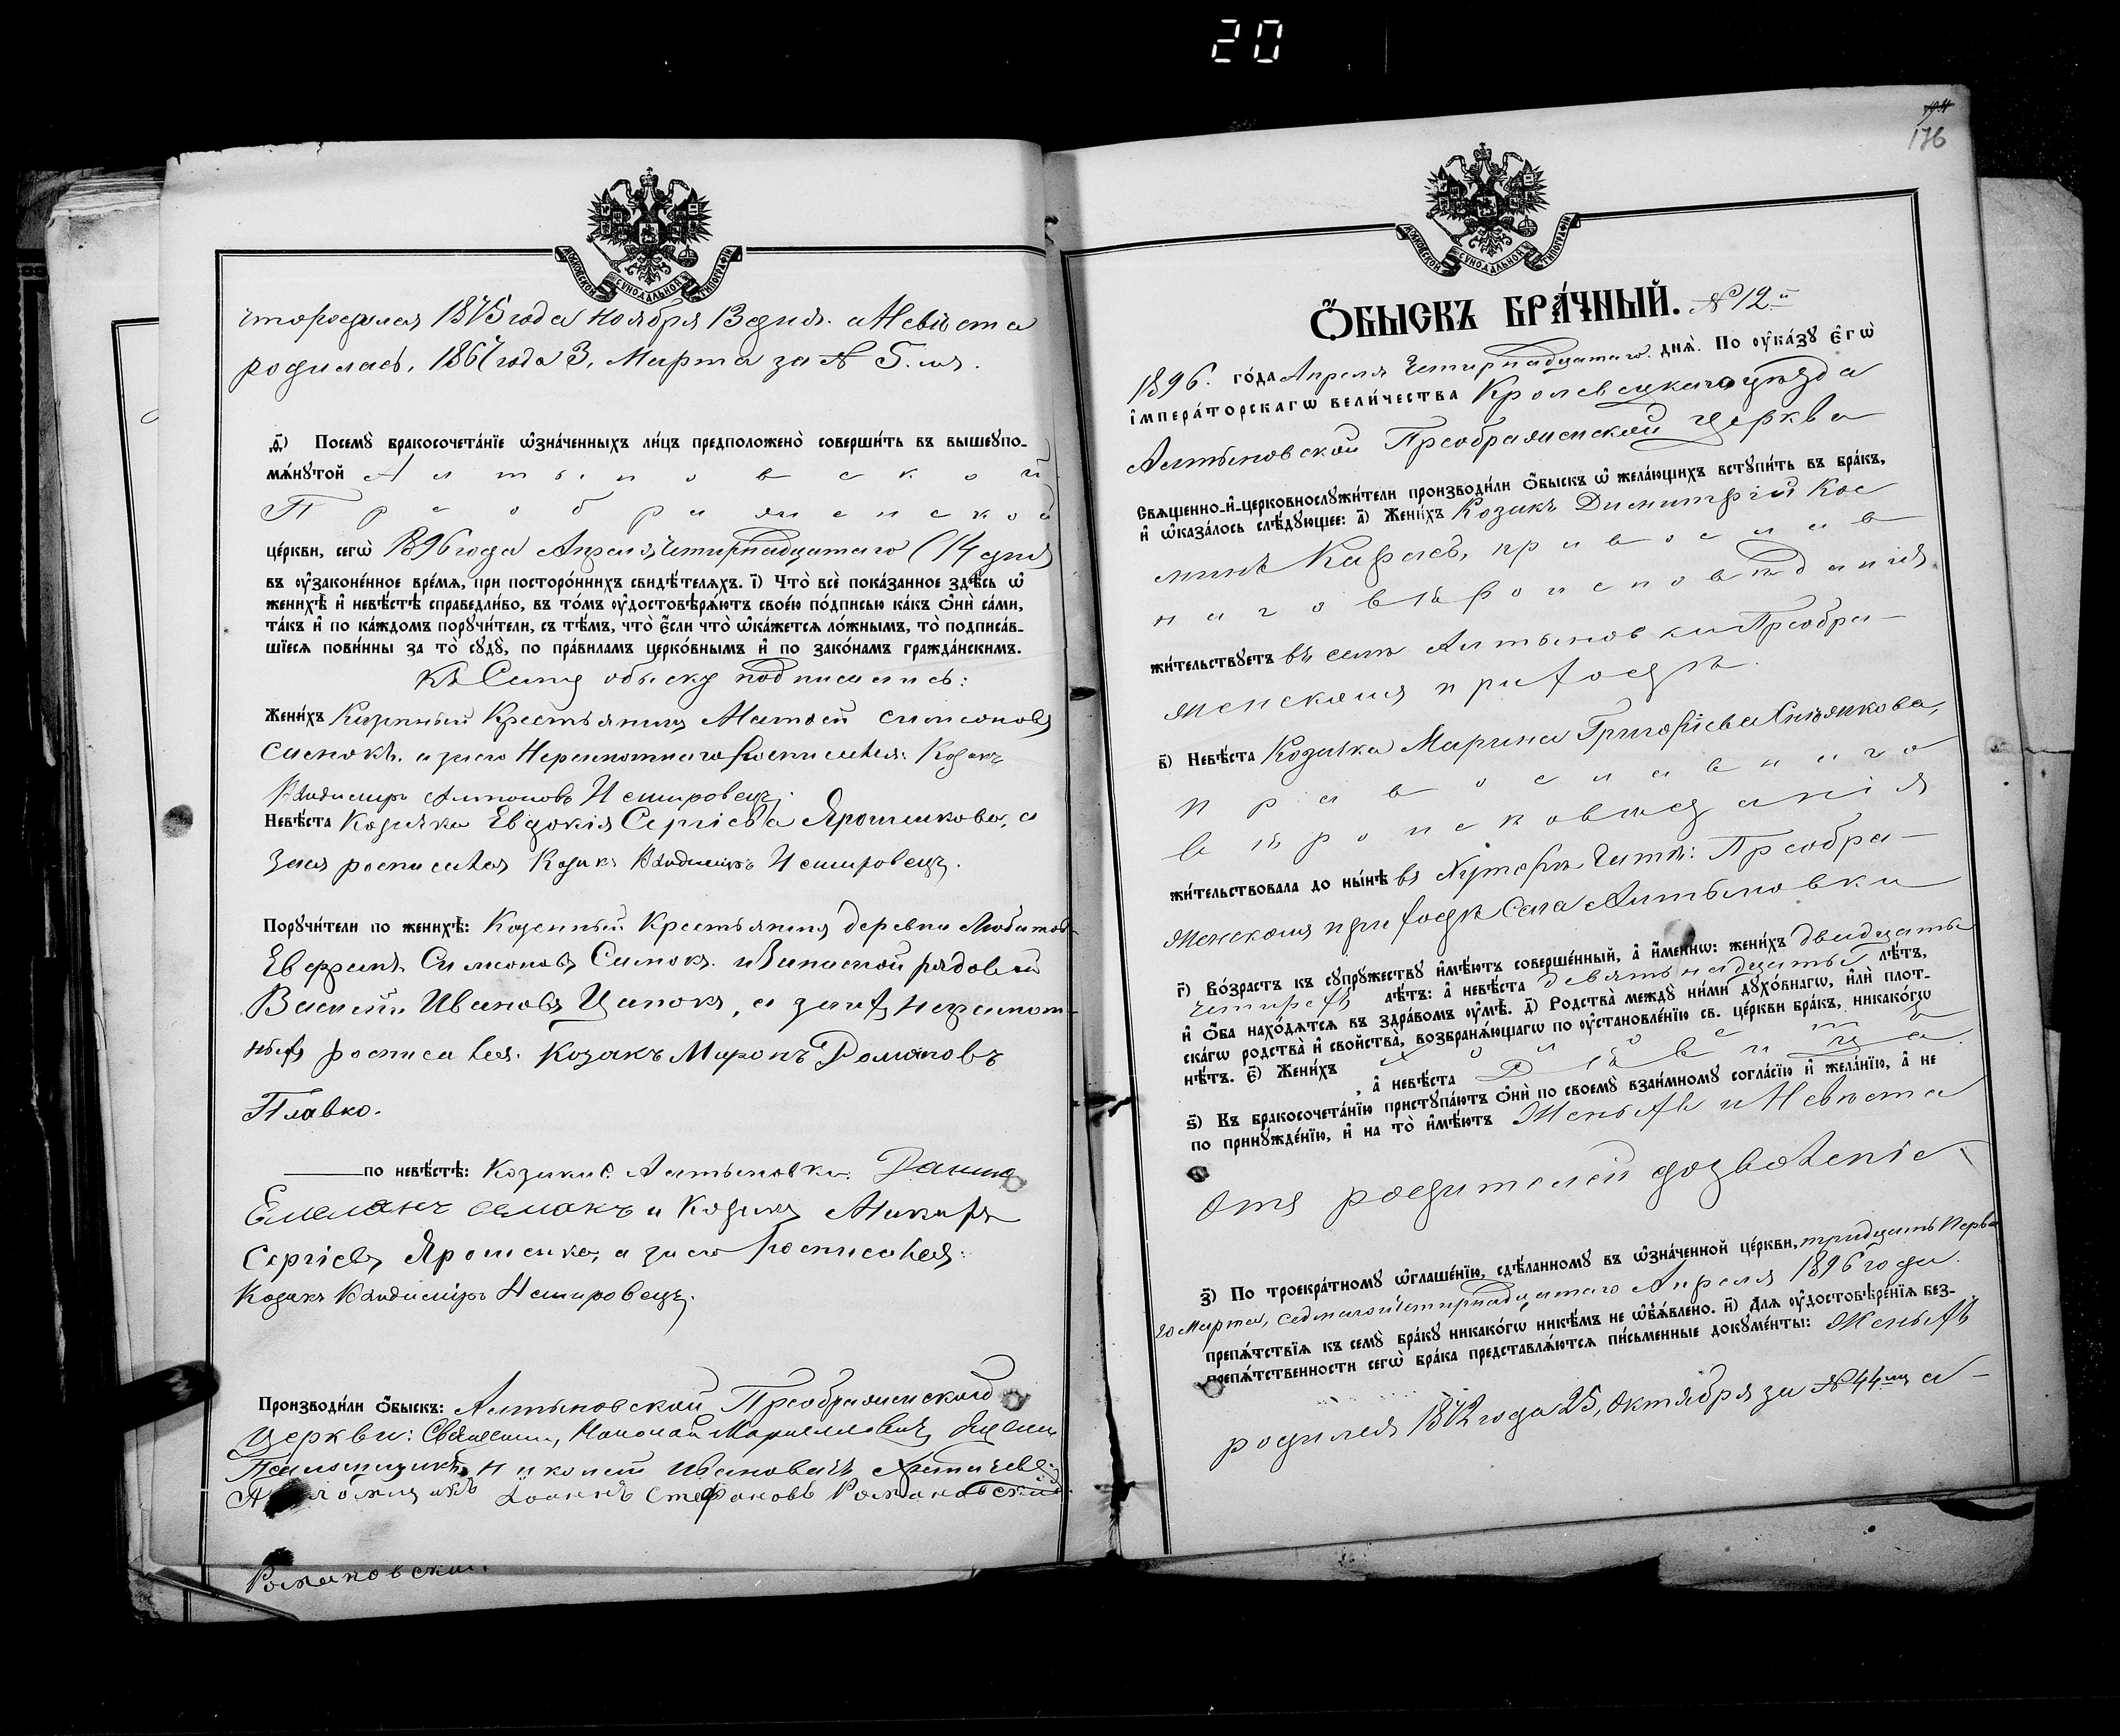 20
176
МОСКОВСКОЙ СѴНОДАЛЬНОЙ ТИПОГРАФІИ
что родился 1875 года Ноября 13 дня. а Невѣста
родилась, 1867 года 3, Марта за № 5.мъ.
Посемꙋ̀ бракосочета́нїе ѡ҆зна́ченныхъ ли́цъ предположено̀ соверши́ть въ вышеꙋпо-
мѧ́нꙋтой Алтыновской
Преображенской
це́ркви, сегѡ̀ 1896 года Апреля, Четырнадцатаго (14 дня
въ ᲂу҆законе́нное вре́мѧ, при посторо́ннихъ свидѣ́телѧхъ. і҃) Что̀ всѐ пока́занное здѣ́сь ѡ҆
женихѣ̀ и҆ невѣ́стѣ справедли́во, въ то́мъ ᲂу҆достовѣрѧ́ютъ свое́ю по́дписью ка́къ ѻ҆нѝ са́ми,
та́къ и҆ по ка́ждомъ порꙋчи́тели, съ тѣ́мъ, что̀ є҆́сли что̀ ѡ҆ка́жетсѧ ло́жнымъ, то̀ подписа́в-
шїесѧ пови́нны за то̀ сꙋдꙋ̀, по пра́виламъ церко́внымъ и҆ по зако́намъ гражда́нскимъ.
Къ Сему обыску подписались:
Жени́хъ Казенный Крестьянинъ Матвей Симоновъ
Симокъ. а за него Неграмотнаго росписался: Козакъ
Владимиръ Антоновъ Немировецъ.
Невѣ́ста Козачка Евдокія Сергіева Ярошенкова, а
за нея росписался Козакъ Владимиръ Немировецъ.
Порꙋчи́тели по женихѣ̀: Казенный Крестьянинъ деревни
Симоновъ Симокъ. и Запасной рядовой
Василій Ивановъ Цапокъ, а за нихъ неграмот-
ныхъ росписался. Козакъ Миронъ Романовъ
Плавко.
по невѣ́стѣ: Козаки с. Алтыновки.
и Козакъ
Сергіевъ Ярошенко, а за него росписался:
Козакъ Владимиръ Немировецъ.
Производи́ли ѻ҆́быскъ: Алтыновской Преображенской
Церкви:
Псаломщикъ Николай Ивановичъ
Іоаннъ Стефановъ Романовскій
Романовскій.
Ѻ҆БЫСКЪ БРА́ЧНЫЙ. № 12.й
1896. го́да Апреля Четырнадцатаго. днѧ̀. По ᲂу҆ка́зꙋ є҆гѡ̀
і҆мпера́торскагѡ вели́чества Кролевецкаго уѣзда
Алтыновской Преображенской Церкви
Сваще́нно-и҆-церковнослꙋжи́тели производи́ли ѻ҆́быскъ ѡ҆ жела́ющихъ встꙋпи́ть въ бра́къ,
и҆ ѡ҆каза́лось слѣ́дꙋющее: а҃) Жени́хъ Козакъ Димитрій Кос
минъ Карась, православ
наго вѣроисповѣданія
жи́тельствꙋетъ въ селѣ Алтыновки Преобра-
женскомъ приходѣ.
в҃) Невѣ́ста Козачка Марина Григоріева
православнаго
вѣроисповѣданія
жи́тельствовала до ны́нѣ въ Хуторѣ Преобра-
женскомъ приходѣ Села Алтыновки
г҃) Во́зрастъ къ сꙋпрꙋ́жествꙋ и҆мѣ́ютъ соверше́нный, а҆ и҆́менно: жени́хъ двадцать
четырехъ лѣ́тъ: а҆ невѣ́ста девятнадцати лѣ́тъ,
и҆ ѻ҆́ба нахо́дѧтсѧ въ здра́вомъ ᲂу҆мѣ̀. д҃) Родства̀ междꙋ̀ ни́ми дꙋхо́внагѡ, и҆лѝ плот-
ска́гѡ родства̀ и҆ сво́йства̀, возбранѧ́ющагѡ по ᲂу҆становле́нїю св. це́ркви бра́къ, никако́гѡ
нѣ́тъ. є҃) Жени́хъ холостъ
, а҆ невѣ́ста Дѣвица.
ѕ҃) Къ бракосочета́нїю пристꙋпа́ютъ ѻ҆нѝ по своемꙋ̀ взаи́мномꙋ согла́сїю и҆ жела́нїю, а҆ не
по принꙋжде́нїю, и҆ на то̀ и҆мѣ́ютъ Женихъ и Невѣста
отъ родителей дозволеніе
з҃) По троекра́тномꙋ ѡ҆глаше́нїю, сдѣ́ланномꙋ въ ѡ҆зна́ченной це́ркви, тридцать перва
го Марта, седмаго и четырнадцатаго Апреля 1896 года.
препѧ́тствїѧ къ семꙋ̀ бра́кꙋ никако́гѡ никѣ́мъ не ѡ҆б̾ѧ́влено. и҃) Для ᲂу҆достовѣре́нїѧ без-
препѧ́тственности сегѡ̀ бра́ка представлѧ́ютсѧ пи́сьменные докꙋме́нты: Женихъ
родился 1872 года 25, Октября за № 44мъ а-